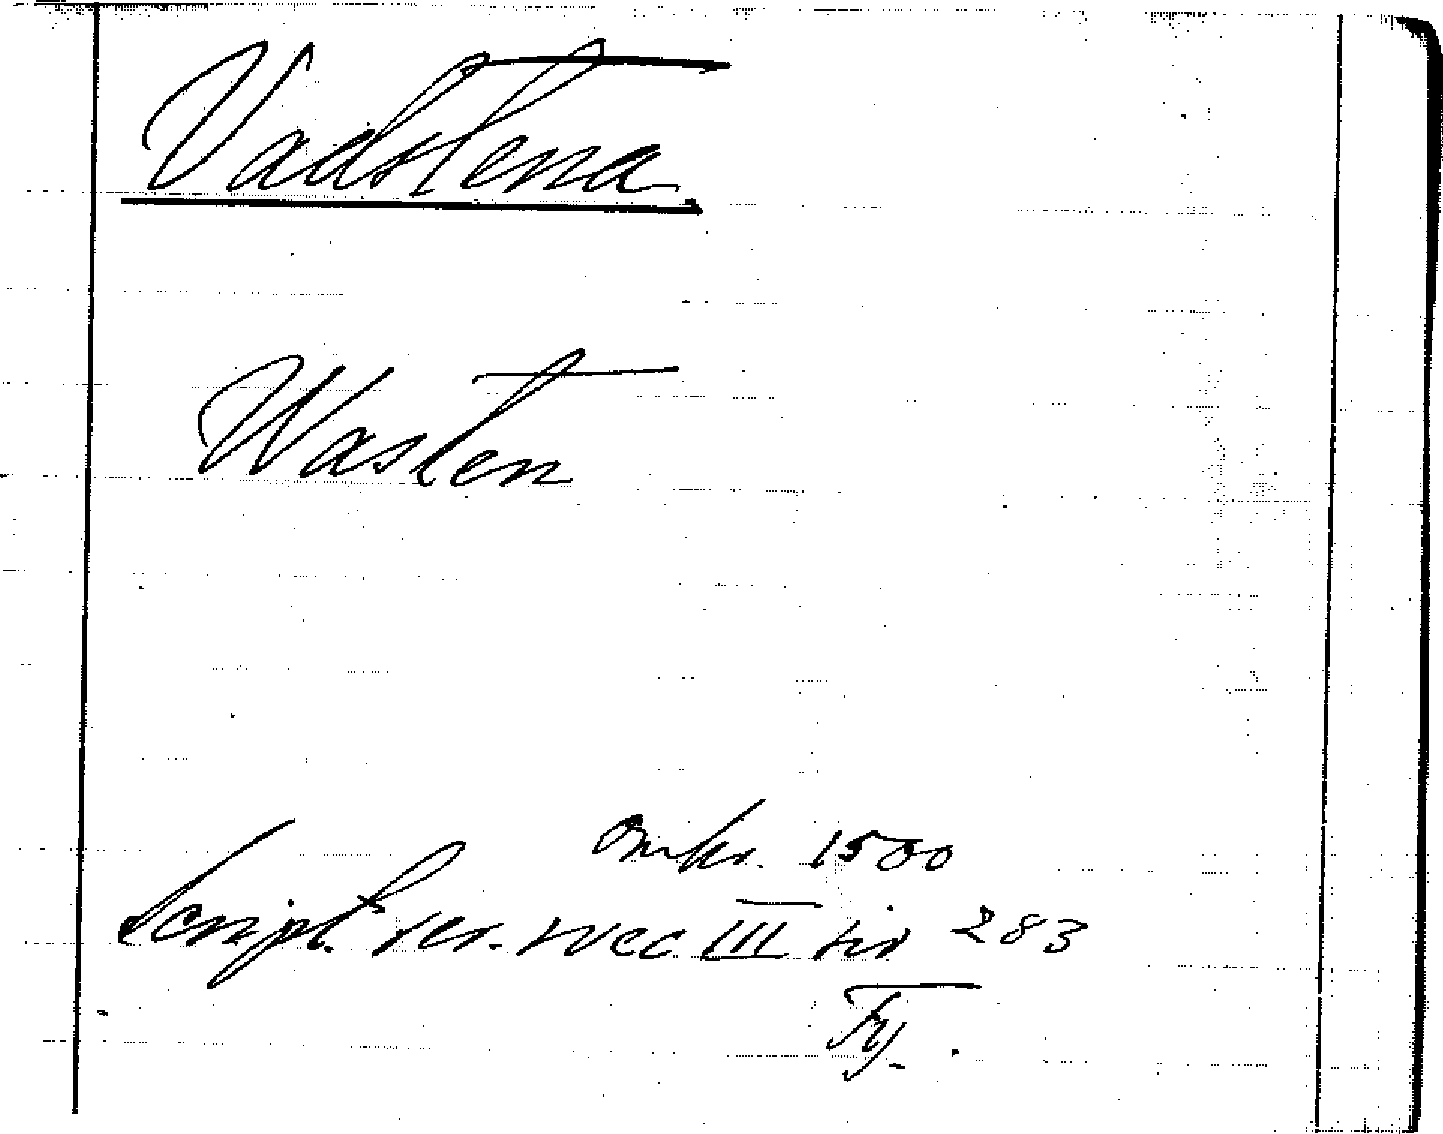 Vadstena
Wasten
Omkr. 1500
Script. rer. svec III sid 283
Fry.